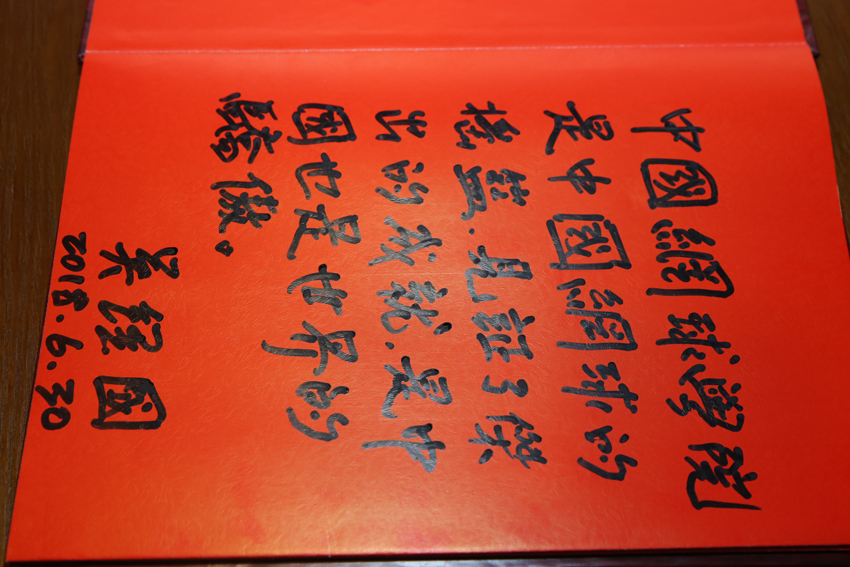 中國網球學院
是中國網球的
搖籃.見證了傑
出的成就.是中
國也是世界的
驕傲。
吳經國
2018.6.30